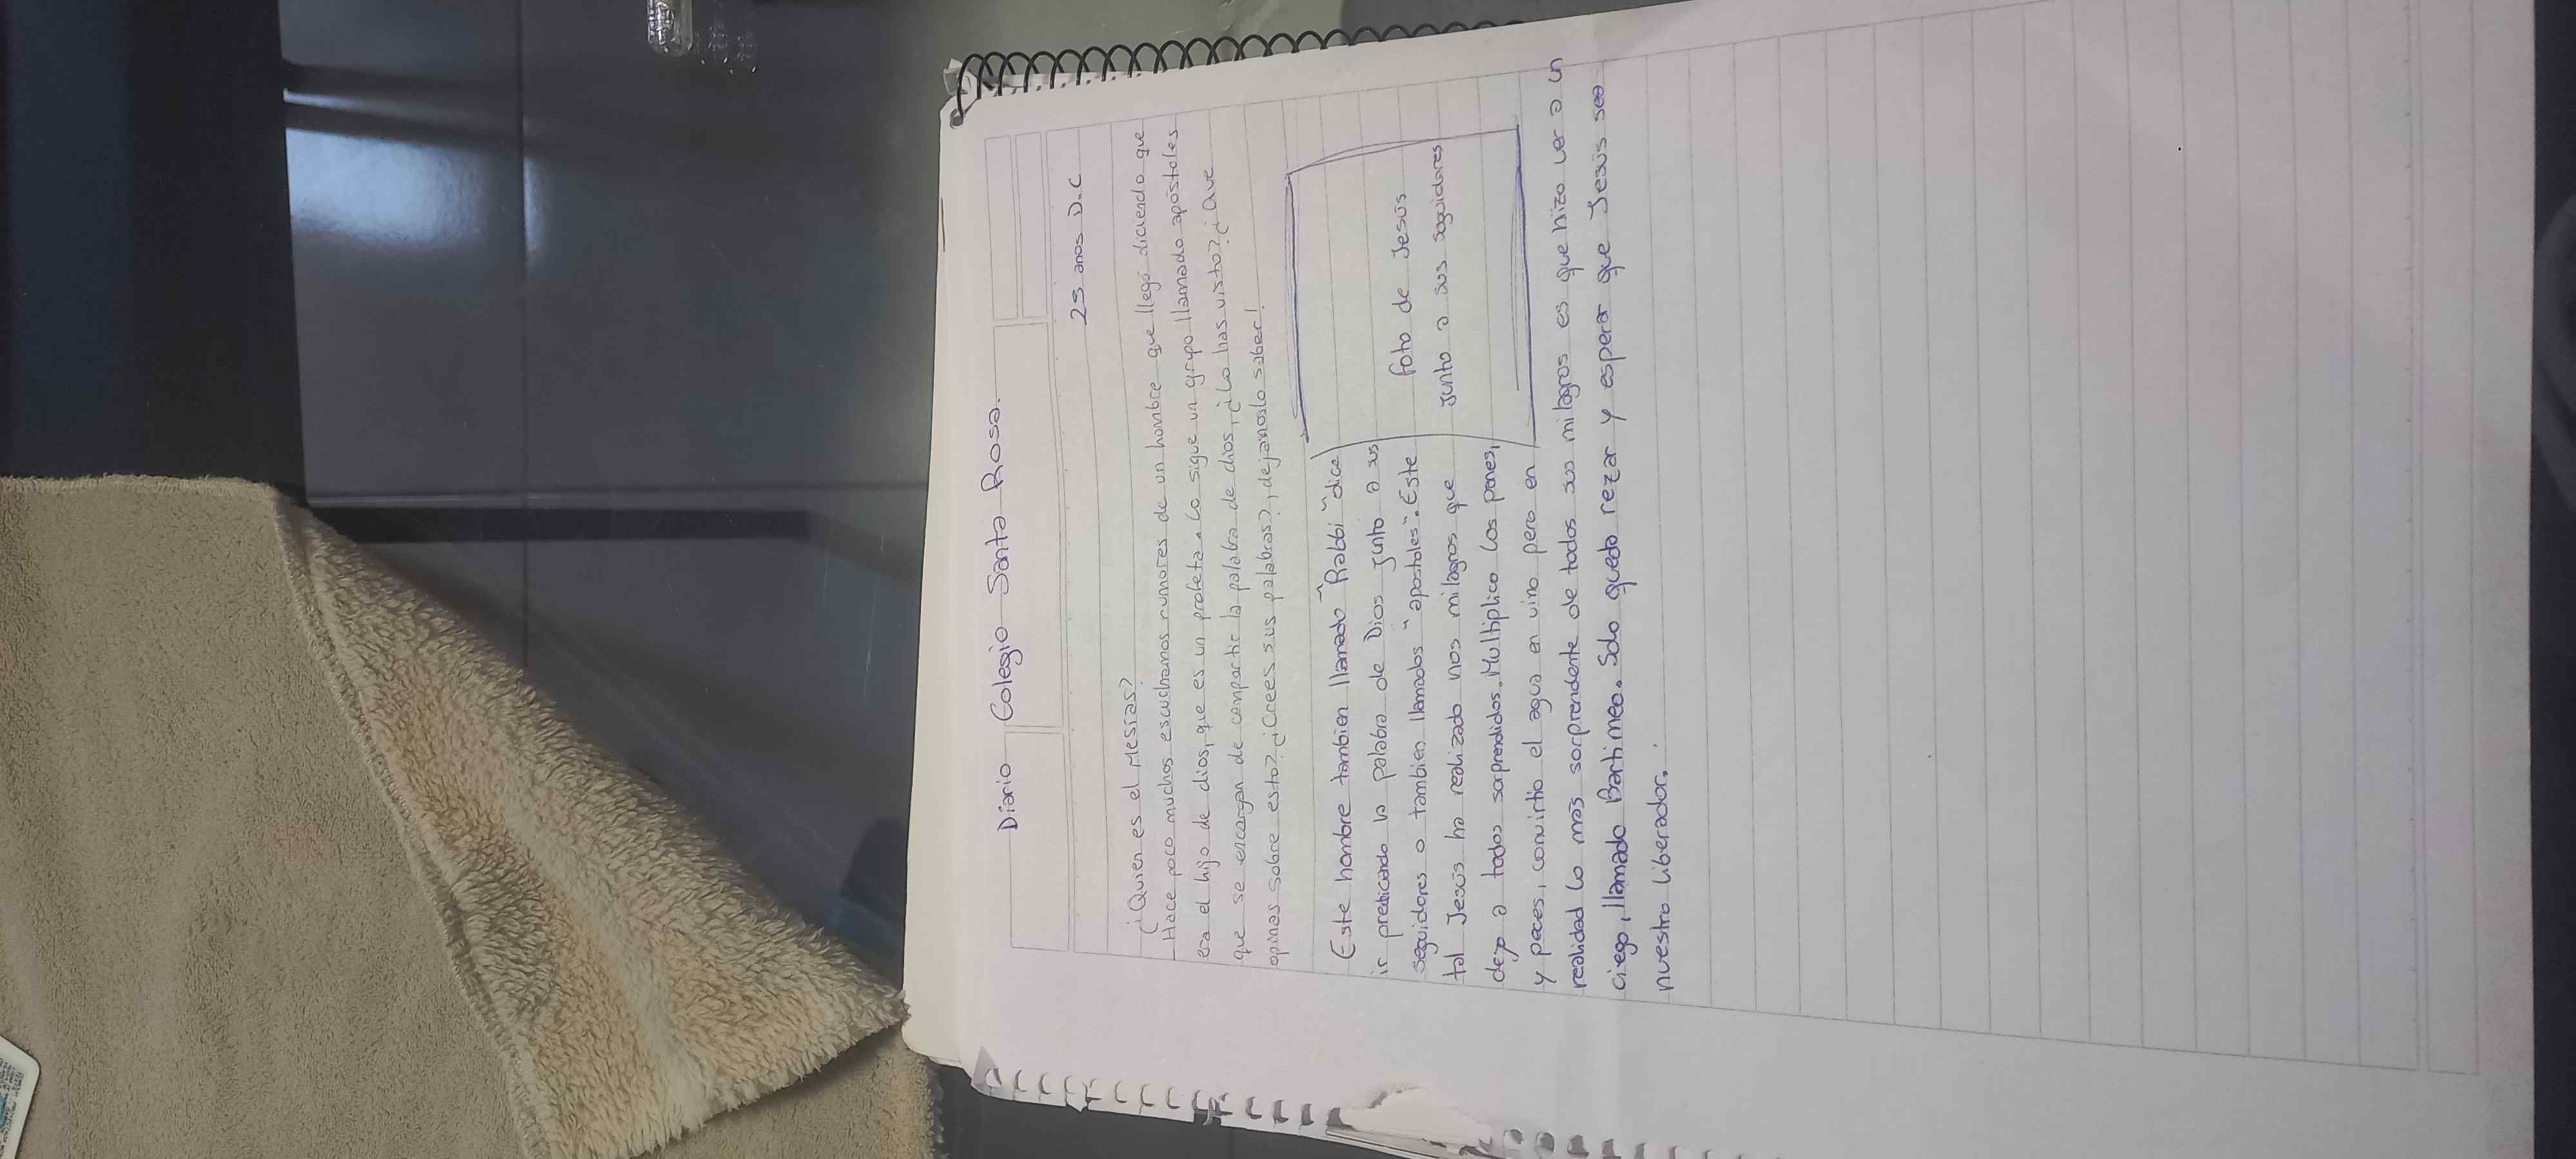 Diario Colegio Santa Rosa.
25 anos D.C
¿Quien es el Mesías?
-Hace poco muchos escuchamos rumores de un hombre que llegó diciendo que
era el hijo de dios, que es un profeta. Lo sigue un grupo llamado apóstoles
que se encargan de compartir la palabra de dios, ¿Lo has visto? ¿Que
opinas sobre esto? ¿Crees sus palabras?, dejanoslo saber!
Este hombre tambien llamado "Rabbi" dice
ir predicando la palabra de Dios junto a sus
seguidores o tambien llamados "apostoles". Este
tal Jesús ha realizado unos milagros que
dejo a todos sorprendidos. Multiplico los panes,
y peces, convirtio el agua en vino pero en
foto de Jesús
junto a sus seguidores
realidad lo mas sorprendente de todos sus milagros es que hizo ver a un
ciego, llamado Bartimeo. Solo queda rezar y esperar que Jesús sea
nuestro liberador.